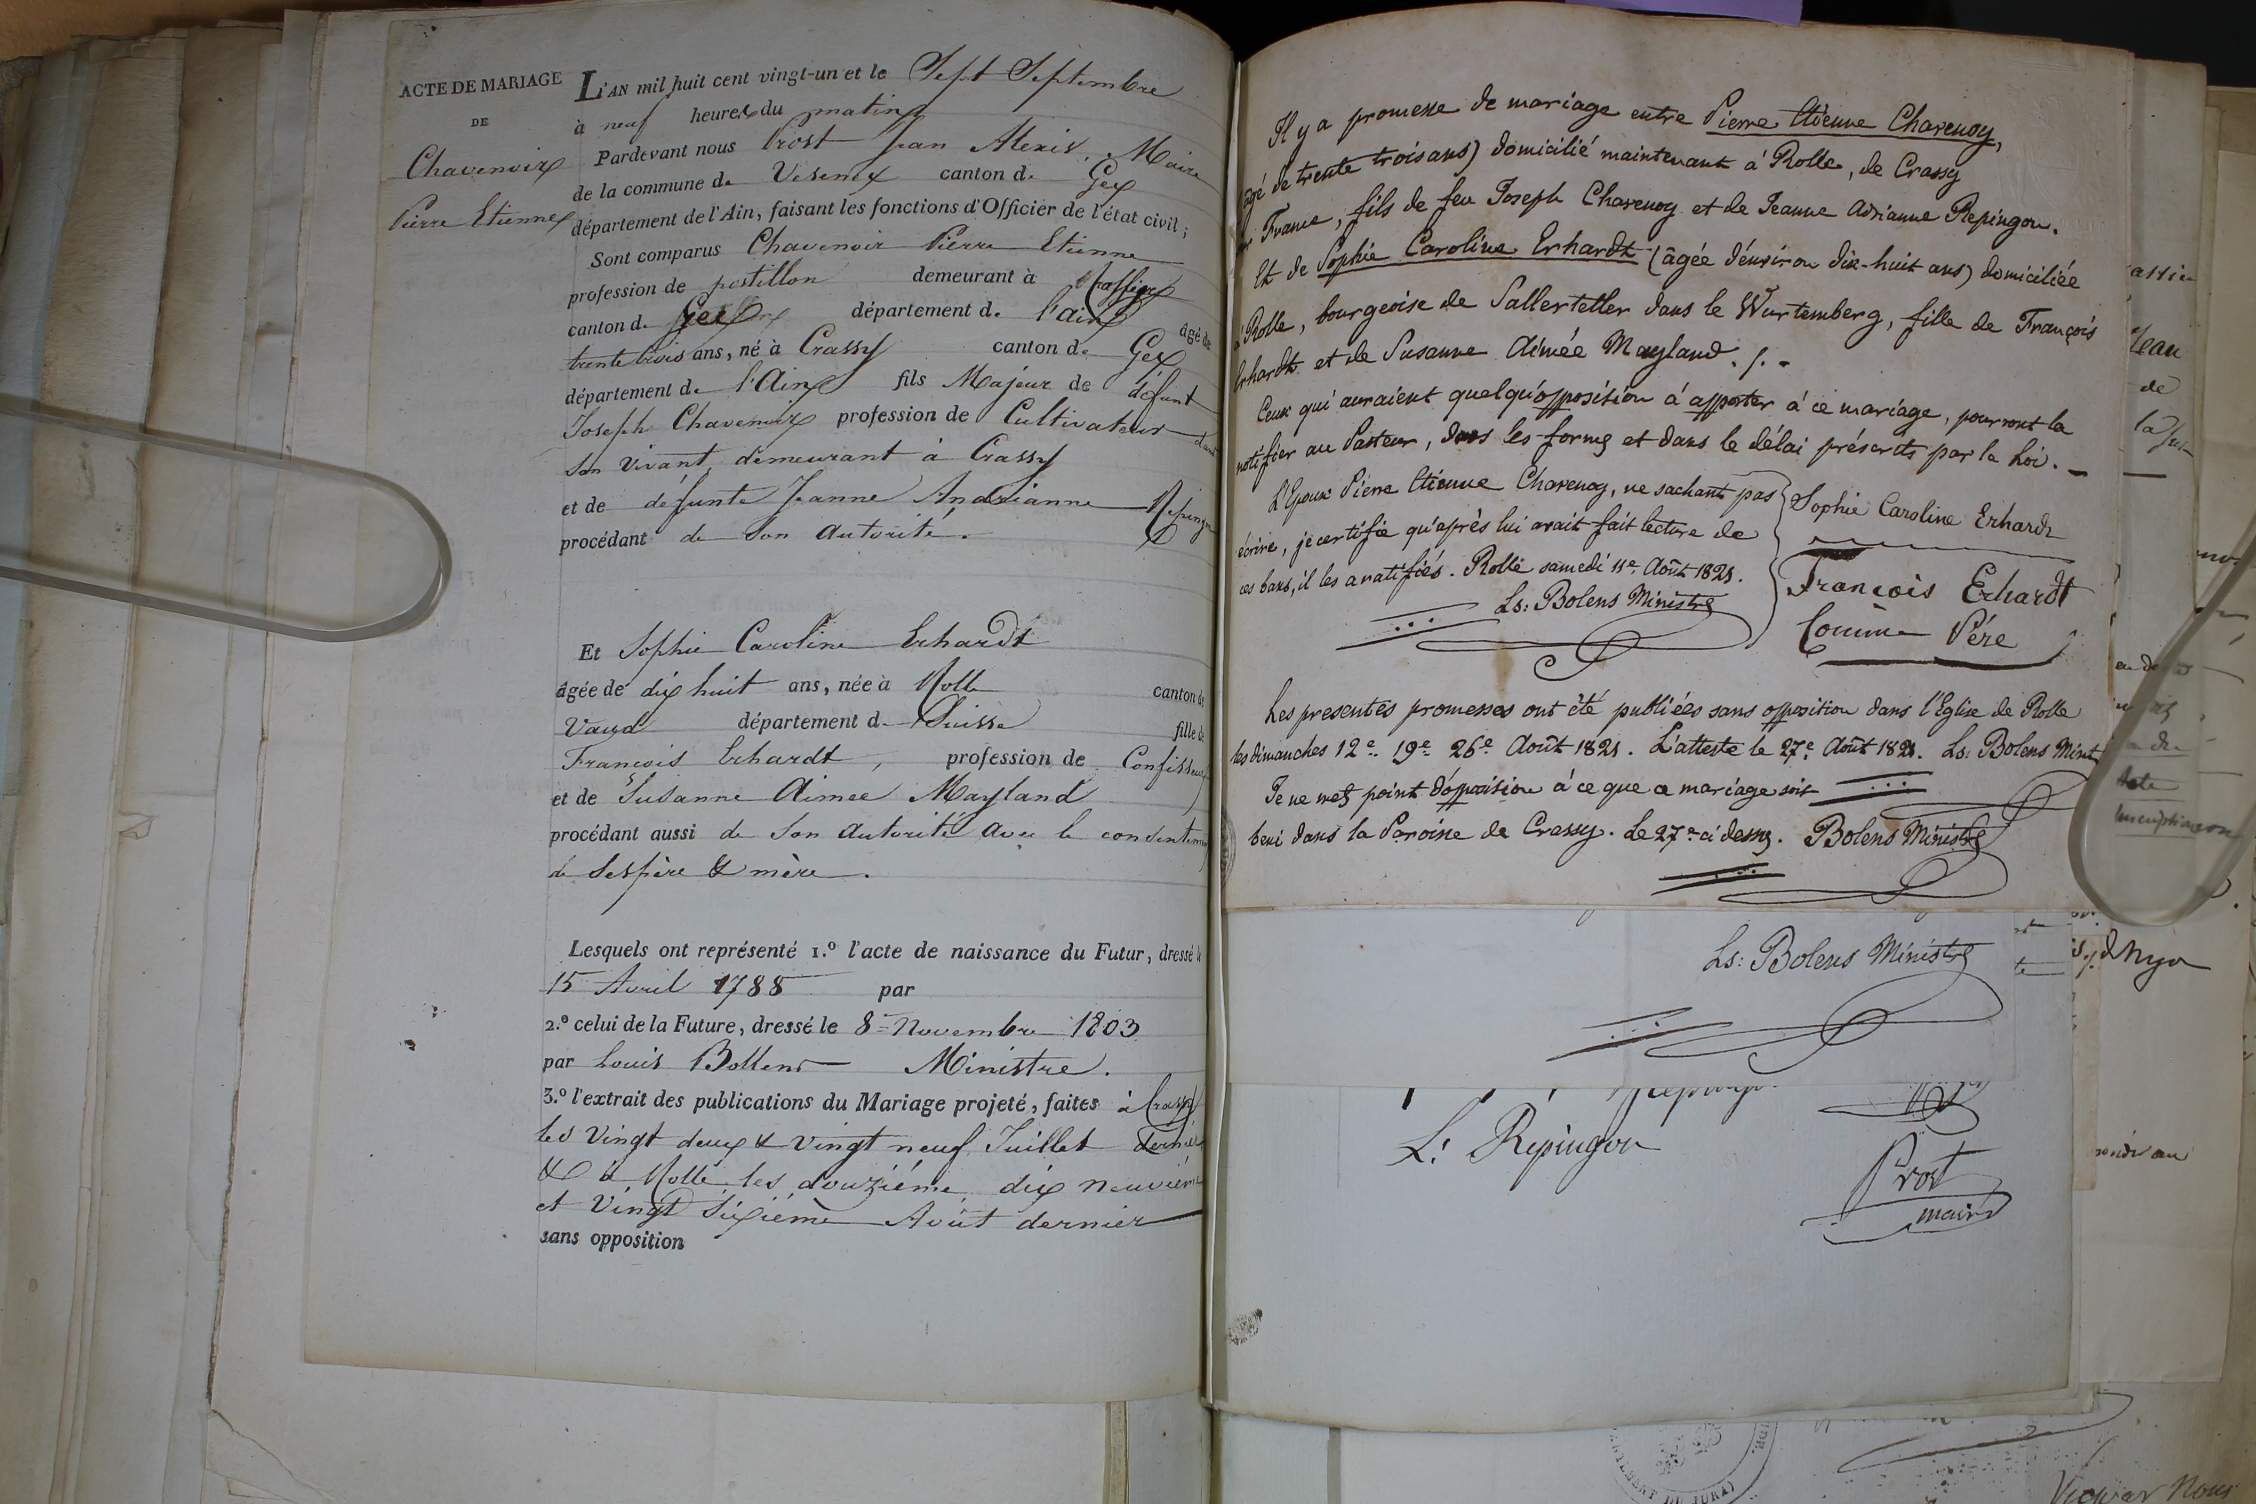 ACTE DE MARIAGE
DE
Chavenoix
Pierre Etienne
L'AN mil huit cent vingt-un et le Sept Septembre
à neuf heures du matin
Pardevant nous Prost Jean Alexis, Maire
de la commune de Vesenex canton de Gex
département de l'Ain, faisant les fonctions d'Officier de l'état civil;
Sont comparus Chavenoix Pierre Etienne
profession de postillon demeurant à Crassy
canton de Gex département de l'ain âgé de
trente trois ans, né à Crassy canton de Gex
département de l'Ain fils Majeur de défunt
Joseph Chavenoix profession de Cultivateur dans
son vivant, demeurant à Crassy
et de défunte Jeanne Andrianne Repingon
procédant de son autorité.
Et Sophie Caroline Erhardt
âgée de dix huit ans, née à Rolle canton de
Vaud département d Suisse fille de
François Erhardt, profession de Confisseur
et de Susanne Aimée Mayland
procédant aussi de son autorité avec le consentem
de ses père & mère.
Lesquels ont représenté 1.º l'acte de naissance du Futur, dressé le
15 Avril 1788 par
2.º celui de la Future, dressé le 8 Novembre 1803
par Louis Bollens Ministre.
3.º l'extrait des publications du Mariage projeté, faites à Crassy
les vingt deux & vingt neuf Juillet dernier
& à Rolle les douzième, dix neuvième
et vingt sixième Août dernier
sans opposition
Il y a promesse de mariage entre Pierre Etienne Charenoy,
âgé de trente trois ans) domicilié maintenant à Rolle, de Crassy
France, fils de feu Joseph Charenoy et de Jeanne Adrianne Repingon.
Et de Sophie Caroline Erhardt (âgée d'environ dix-huit ans) domiciliée
à Rolle, bourgeoise de dans le Wurtemberg, fille de François
Erhardt et de Susanne Aimée Mayland. /. -
Ceux qui auraient quelqu'opposition à apporter à ce mariage, pourront la
notifier au Pasteur, dans les formes et dans le délai préscrits par la Loi. -
L'Epoux Pierre Etienne Charenoy, ne sachant pas
écrire, je certifie qu'après lui avait fait lecture de
ces bans, il les a ratifiés. Rolle samedi 11e. Août 1821.
Ls: Bolens Ministre
Sophie Caroline Erhardt
François Erhardt
Comme Père
Les presentes promesses ont été publiées sans opposition dans l'Eglise de Rolle
les dimanches 12e. 19e. 26e. Août 1821. L'atteste le 27e. Août 1821. Ls: Bolens Minist
Je ne mets point d'opposition à ce que ce mariage soit
beni dans la Paroisse de Crassy. Le 27e. ci dessus. Bolens Ministre
Ls: Bolens Ministre
L: Repingon
Prost
maire
Jean
de